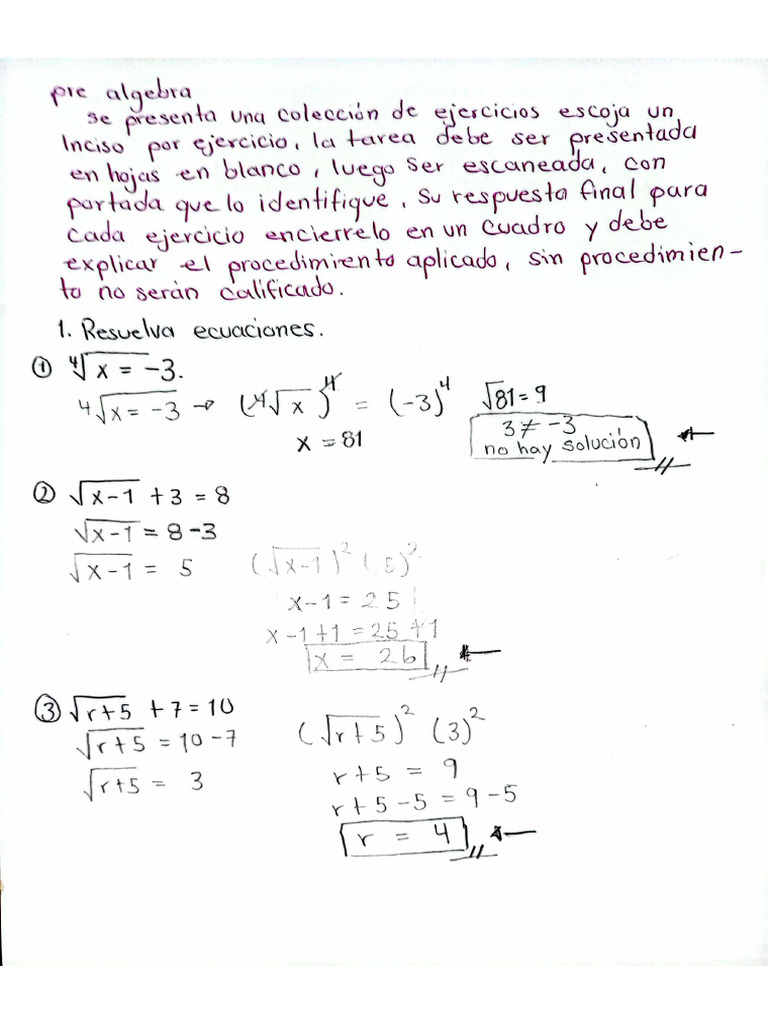 pre algebra
se presenta una colección de ejercicios escoja un
Inciso por ejercicio, la tarea debe ser presentada
en hojas en blanco, luego ser escaneada, con
portada que lo identifique. Su respuesta final para
cada ejercicio encierrelo en un cuadro y debe
explicar el procedimiento aplicado, sin procedimien-
to no serán calificado.
1. Resuelva ecuaciones.
① ⁴√x = -3.
⁴√x = -3 → (⁴√x)⁴ = (-3)⁴ √81 = 9
x = 81
3 ≠ -3
no hay solución
② √x-1 + 3 = 8
√x-1 = 8-3
√x-1 = 5 (√x-1)² (5)²
x-1 = 25
x-1+1 = 25+1
x = 26
③ √r+5 + 7 = 10
√r+5 = 10-7 (√r+5)² (3)²
√r+5 = 3
r+5 = 9
r+5-5 = 9-5
r = 4